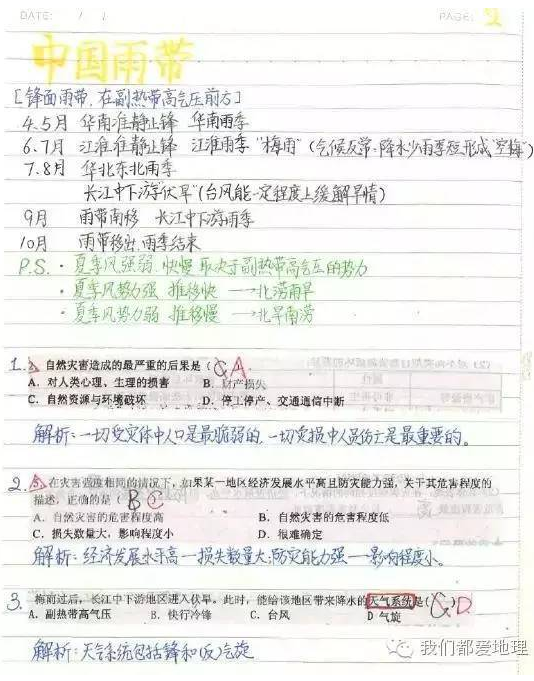 DATE: / /
PAGE:
中国雨带
[锋面雨带,在副热带高气压前方]
4.5月 华南准静止锋 华南雨季
6.7月 江淮准静止锋 江淮雨季 "梅雨"(气候反常.降水少雨季短形成"空梅")
7.8月 华北东北雨季
长江中下游"伏旱"(台风能一定程度上缓解旱情)
9月 雨带南移 长江中下游雨季
10月 雨带移出,雨季结束
P.S. · 夏季风强弱,快慢取决于副热带高气压的势力
· 夏季风势力强 推移快 →北涝南旱
· 夏季风势力弱 推移慢 →北旱南涝
1. 自然灾害造成的最严重的后果是( C A
A. 对人类心理、生理的损害 B. 财产损失
C. 自然资源与环境破坏 D. 停工停产、交通通信中断
解析:一切受灾体中人口是最脆弱的,一切受损中人员伤亡是最重要的。
2. 在灾害强度相同的情况下,如果某一地区经济发展水平高且防灾能力强,关于其危害程度的
描述,正确的是( B C
A. 自然灾害的危害程度高 B. 自然灾害的危害程度低
C. 损失数量大,影响程度小 D. 很难确定
解析:经济发展水平高—损失数量大;防灾能力强—影响程度小。
3. 梅雨过后,长江中下游地区进入伏旱。此时,能给该地区带来降水的天气系统是( C )D
A. 副热带高气压 B. 快行冷锋 C. 台风 D 气旋
解析:天气系统包括锋和(反)气旋
我们都爱地理